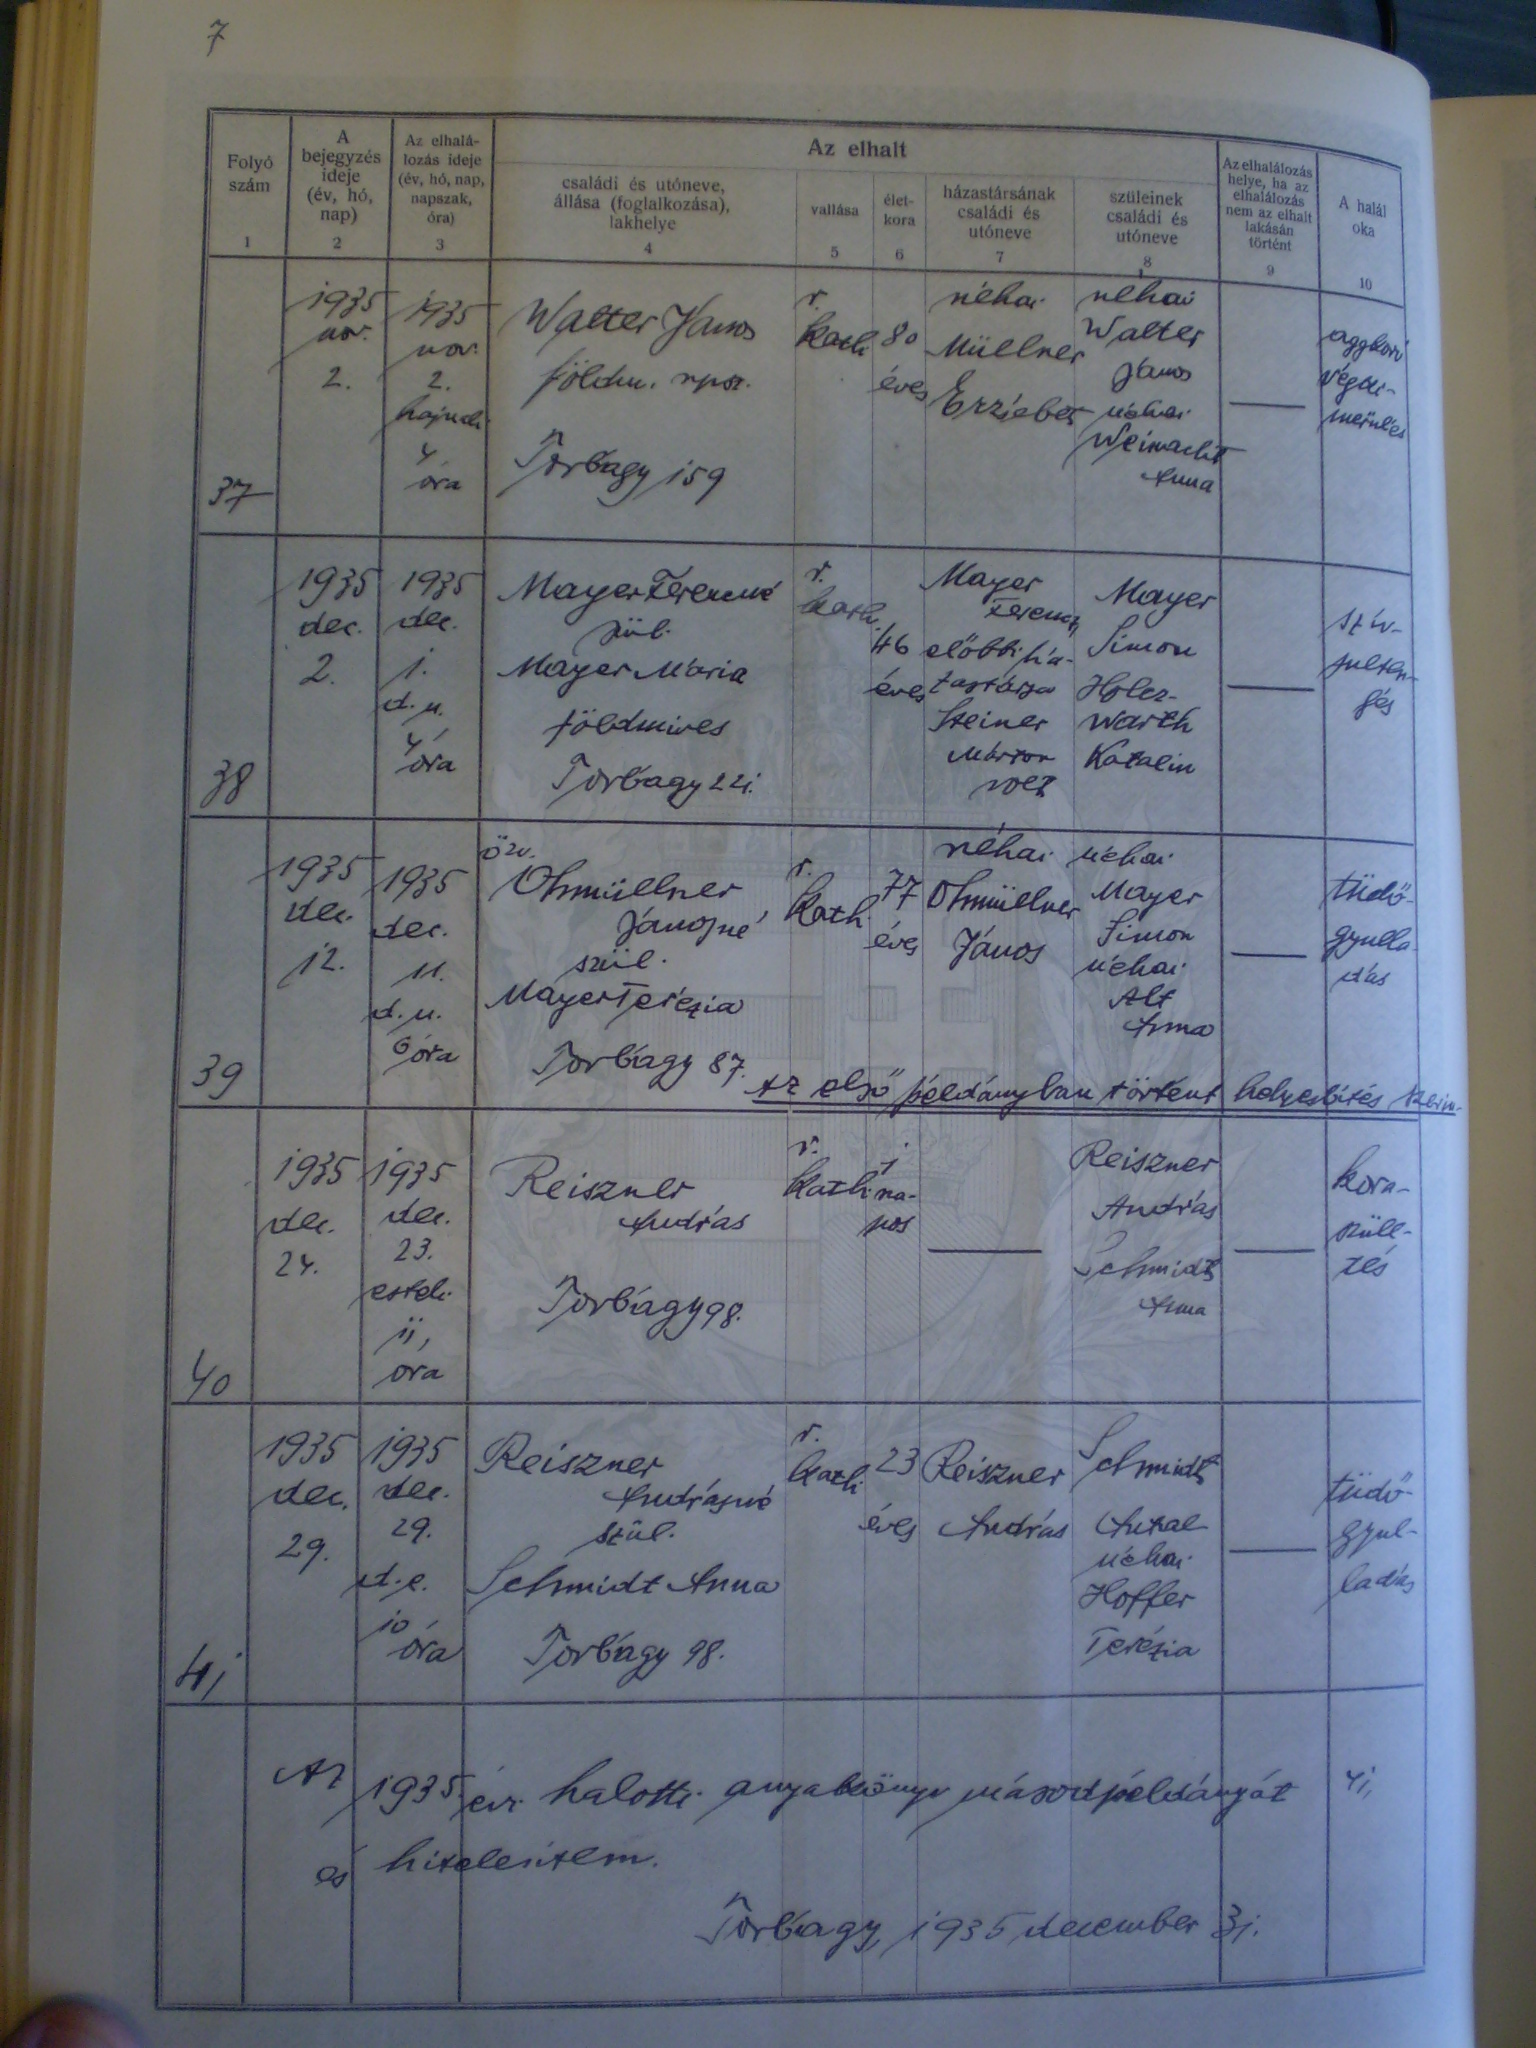 7
Folyó
szám
1
A
bejegyzés
ideje
(év, hó,
nap)
2
Az elhalá-
lozás ideje
(év, hó, nap,
napszak,
óra)
3
Az elhalt
családi és utóneve,
állása (foglalkozása),
lakhelye
4
vallása
5
élet-
kora
6
házastársának
családi és
utóneve
7
szüleinek
családi és
utóneve
8
Az elhalálozás
helye, ha az
elhalálozás
nem az elhalt
lakásán
történt
9
A halál
oka
10
37
1935
nov.
2.
1935
nov.
2.
hajnali
4
óra
Walter János
földm. npsz.
Torbágy 159
r.
kath.
80
éves
néhai
Müellner
Erzsébet
néhai
Walter
János
néhai
Weinacht
Anna
aggkori
végki-
merülés
38
1935
dec.
2.
1935
dec.
1.
d. u.
4
óra
Mayer Ferencné
szül.
Mayer Mária
földmives
Torbágy 221.
r.
kath.
46
éves
Mayer
Ferenc
előbbi há-
zastársa
Steiner
Márton
volt
Mayer
Simon
Holcz-
warth
Katalin
szív-
szélhű-
dés
39
1935
dec.
12.
1935
dec.
11.
d. u.
6 óra
özv.
Ohmüellner
Jánosné
szül.
Mayer Terézia
Torbágy 87.
r.
kath.
77
éves
néhai
Ohmüellner
János
néhai
Mayer
Simon
néhai
Alt
Anna
tüdő-
gyulla-
dás
Az első példányban történt helyesbítés szerin-
40
1935
dec.
24.
1935
dec.
23.
esteli
11,
óra
Reiszner
András
Torbágy 98.
r.
kath.
1
na-
pos
Reiszner
András
Schmidt
Anna
kora-
szüle-
tés
41
1935
dec.
29.
1935
dec.
29.
d. e.
10
óra
Reiszner
Andrásné
szül.
Schmidt Anna
Torbágy 98.
r.
kath.
23
éves
Reiszner
András
Schmidt
Antal
néhai
Hoffer
Terézia
tüdő-
gyul-
ladás
Az 1935. évi halotti anyakönyv másodpéldányát 41,
és hitelesítem.
Torbágy, 1935 december 31.